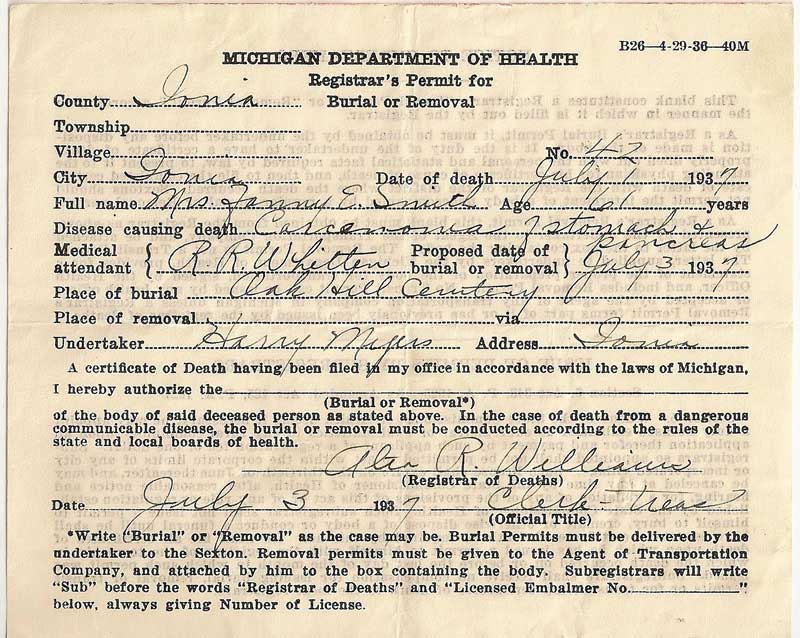 B26—4-29-36—40M
MICHIGAN DEPARTMENT OF HEALTH
Registrar's Permit for
County Ionia Burial or Removal
Township
Village No. 42
City Ionia Date of death July 1 1937
Full name Mrs. Fanny E. Smith Age 61 years
Disease causing death Carcenoma of stomach &
pancreas
Medical attendant R. R. Whitten Proposed date of burial or removal July 3 1937
Place of burial Oak Hill Cemetery
Place of removal via
Undertaker Harry Myers Address Ionia
A certificate of Death having been filed in my office in accordance with the laws of Michigan,
I hereby authorize the
(Burial or Removal*)
of the body of said deceased person as stated above. In the case of death from a dangerous
communicable disease, the burial or removal must be conducted according to the rules of the
state and local boards of health.
R. Williams
(Registrar of Deaths)
Date July 3 1937 Clerk
(Official Title)
*Write "Burial" or "Removal" as the case may be. Burial Permits must be delivered by the
undertaker to the Sexton. Removal permits must be given to the Agent of Transportation
Company, and attached by him to the box containing the body. Subregistrars will write
"Sub" before the words "Registrar of Deaths" and "Licensed Embalmer No. "
below, always giving Number of License.